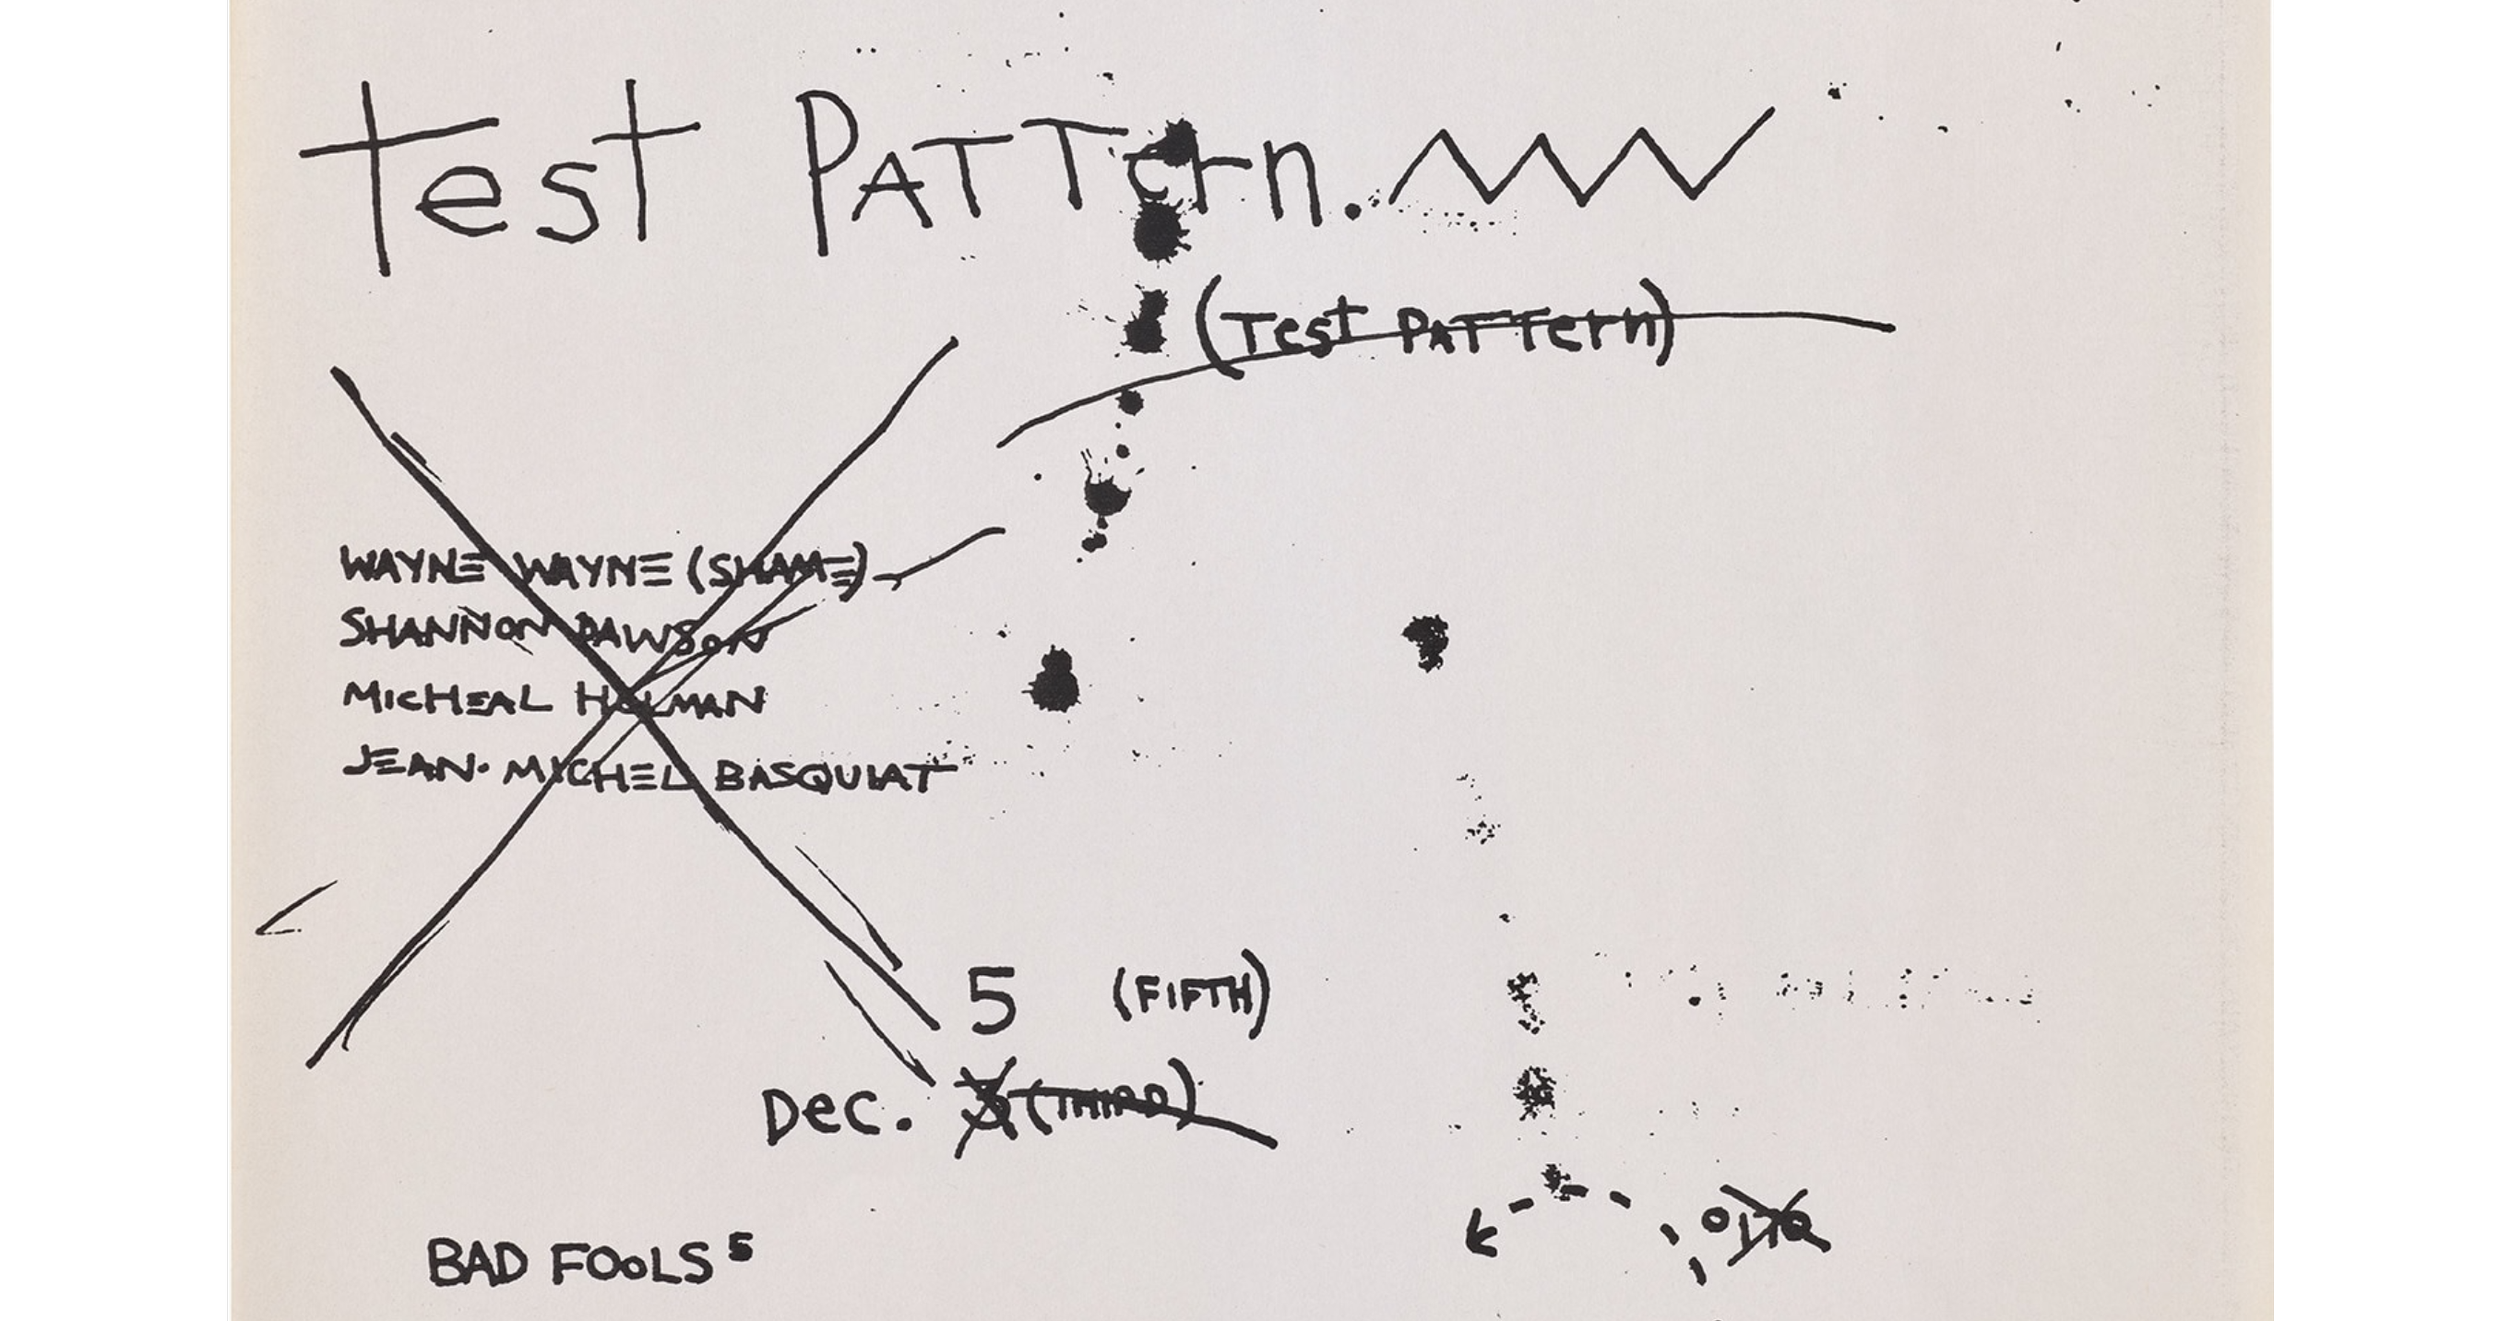 Test PATTern.
(Test PATTern)
WAYNE WAYNE (SHAME)
SHANNON DAWSON
MICHEAL HOLMAN
JEAN·MICHEL BASQUIAT
5 (FIFTH)
Dec. 3 (THIRD)
BAD FOOLS 5